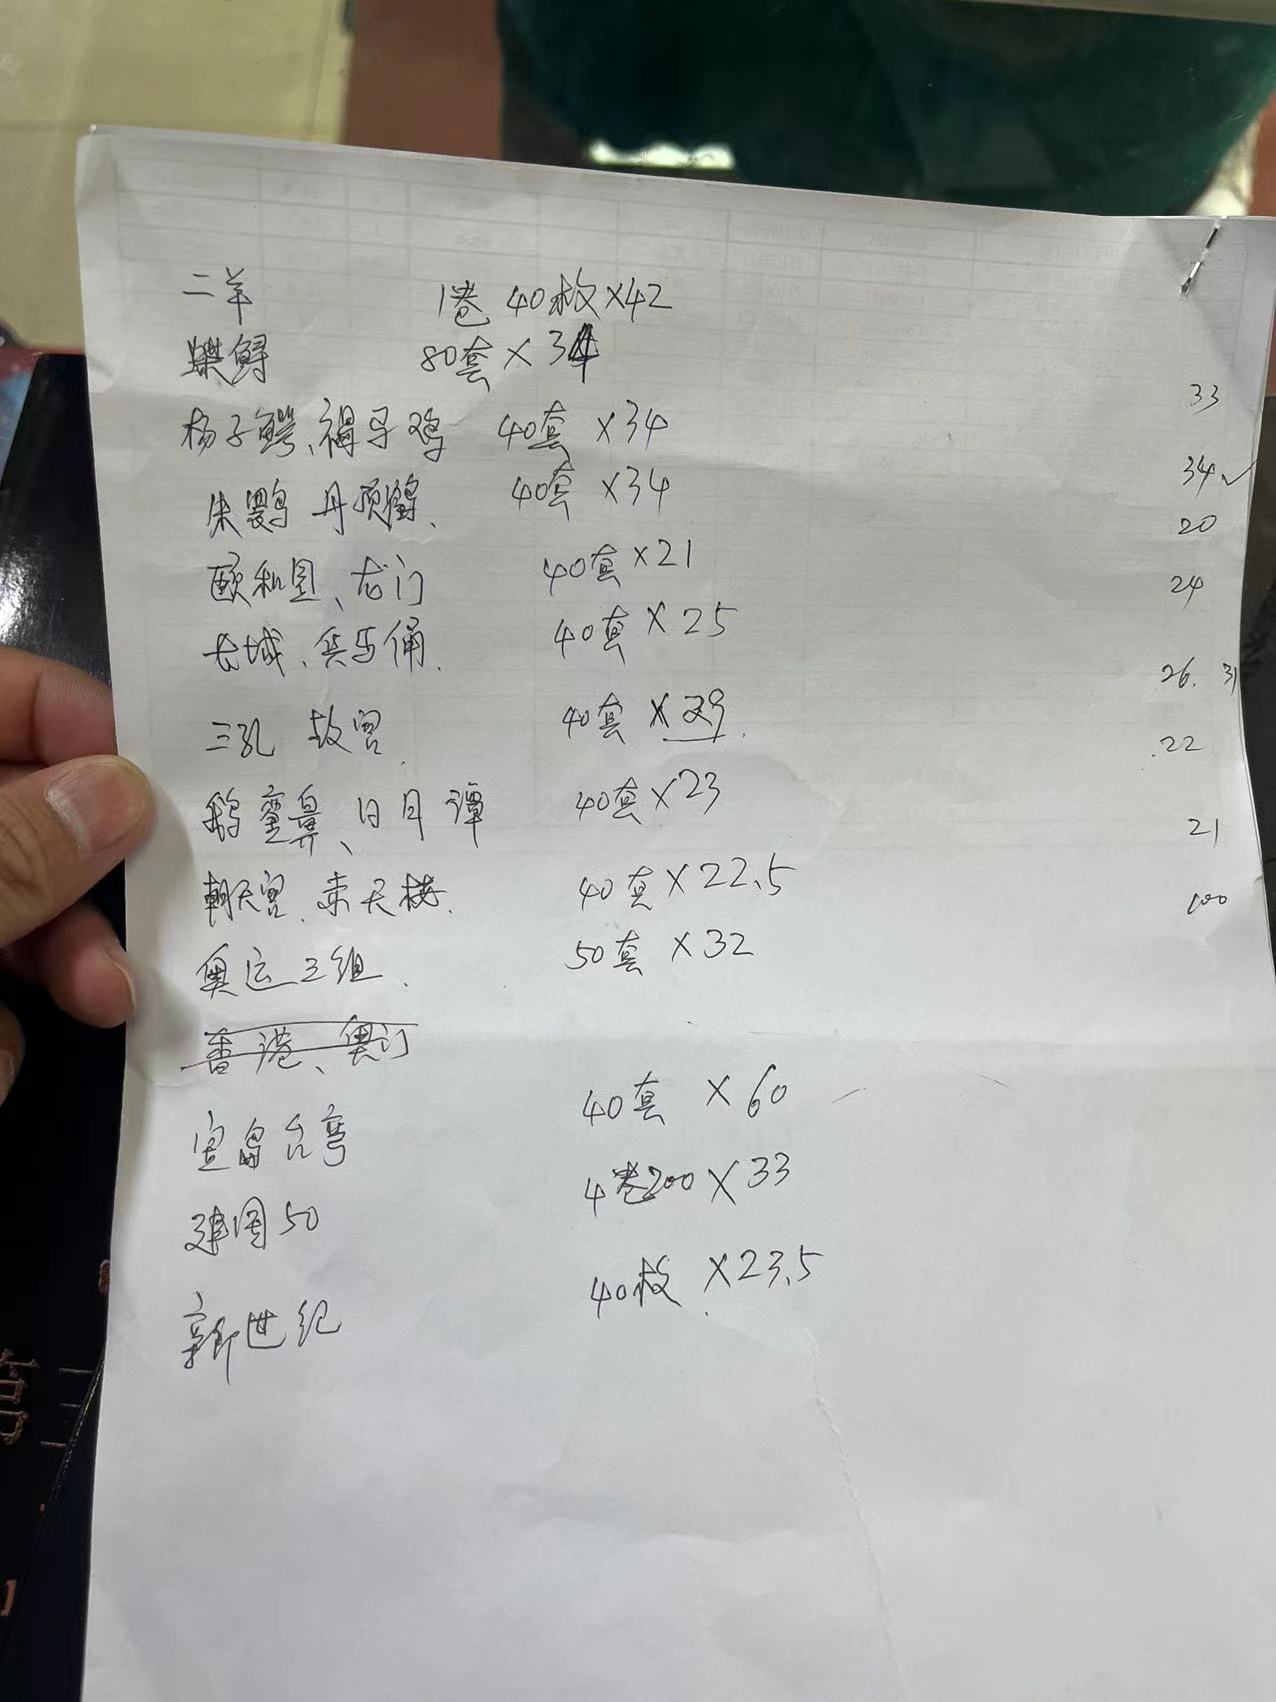 二羊 1卷 40枚×42
蝶鲟 80套×34
33
杨子鳄、褐马鸡 40套×34
34✓
朱鹮 丹顶鹤、 40套×34
20
颐和园、龙门 40套×21
24
长城、兵马俑. 40套×25
26. 31
三孔 故宫. 40套×29.
22
鹅銮鼻、日月潭 40套×23
21
朝天宫、赤天楼. 40套×22.5
100
奥运三组. 50套×32
香港、奥门
宝岛台弯 40套×60
建国50 4卷200×33
新世纪 40枚×23.5